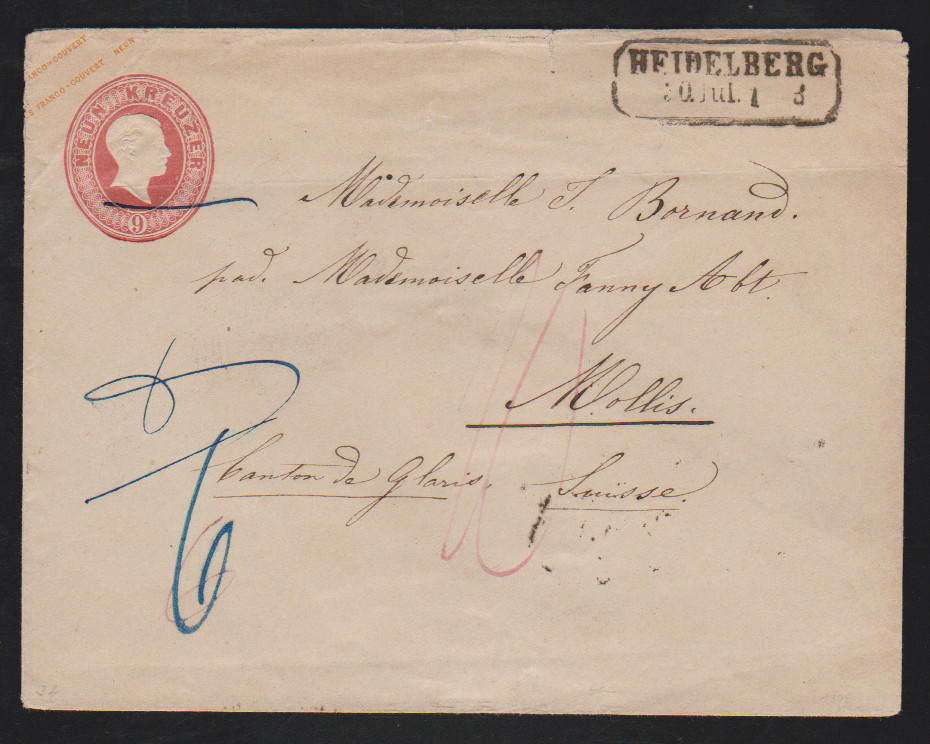 FRANCO-COUVERT NEUN
FRANCO-COUVERT
NEUN KREUZER
9
HEIDELBERG
30 Jul. 1 3
Mademoiselle F. Bornand.
pad. Mademoiselle Fanny Abt.
Mollis.
Canton de Glaris. Suisse.
6
6
10
34